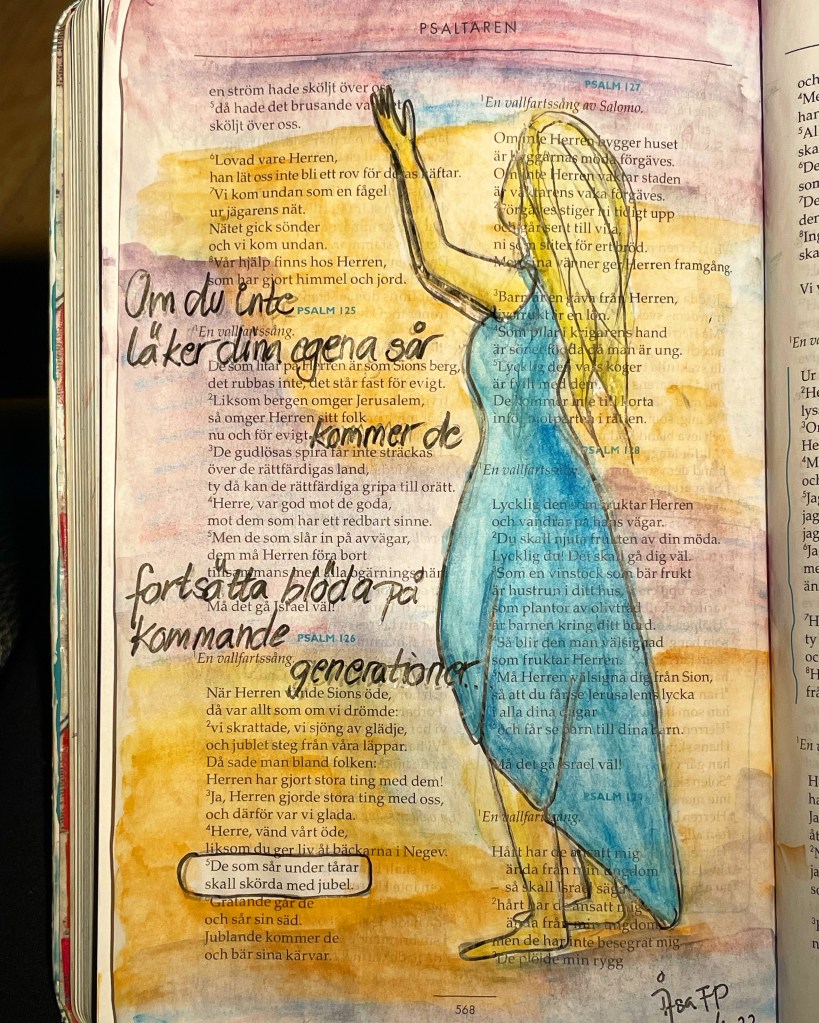 PSALTAREN
en ström hade sköljt över
⁵då hade det brusande
sköljt över oss.
⁶Lovad vare Herren,
han lät oss inte bli ett rov för deras käftar.
⁷Vi kom undan som en fågel
ur jägarens nät.
Nätet gick sönder
och vi kom undan.
⁸Vår hjälp finns hos Herren,
som har gjort himmel och jord.
Om du inte
PSALM 125
¹En vallfartssång.
läker dina egena sår
De som litar på Herren är som Sions berg,
det rubbas inte, det står fast för evigt.
²Liksom bergen omger Jerusalem,
så omger Herren sitt folk
nu och för evigt.
kommer de
³De gudlösas spira får inte sträckas
över de rättfärdigas land,
ty då kan de rättfärdiga gripa till orätt.
⁴Herre, var god mot de goda,
mot dem som har ett redbart sinne.
⁵Men de som slår in på avvägar,
dem må Herren föra bort
tillsammans med alla ogärningsmän
fortsätta blöda på
Må det gå Israel väl!
kommande
PSALM 126
¹En vallfartssång.
generationer.
När Herren vände Sions öde,
då var allt som om vi drömde:
²vi skrattade, vi sjöng av glädje,
och jublet steg från våra läppar.
Då sade man bland folken:
Herren har gjort stora ting med dem!
³Ja, Herren gjorde stora ting med oss,
och därför var vi glada.
⁴Herre, vänd vårt öde,
liksom du ger liv åt bäckarna i Negev.
⁵De som sår under tårar
skall skörda med jubel.
⁶Gråtande går de
och sår sin säd.
Jublande kommer de
och bär sina kärvar.
PSALM 127
¹En vallfartssång av Salomo.
Om inte Herren bygger huset
är byggarnas möda förgäves.
Om inte Herren vaktar staden
är väktarens vaka förgäves.
²Förgäves stiger ni tidigt upp
och går sent till vila,
ni som sliter för ert bröd.
Men sina vänner ger Herren framgång.
³Barn är en gåva från Herren,
livsfrukt är en lön.
⁴Som pilar i krigarens hand
är söner födda då man är ung.
⁵Lycklig den vars koger
är fyllt med dem.
De kommer inte till korta
inför motparten i rätten.
PSALM 128
¹En vallfartssång.
Lycklig den som fruktar Herren
och vandrar på hans vägar.
²Du skall njuta frukten av din möda.
Lycklig du! Det skall gå dig väl.
³Som en vinstock som bär frukt
är hustrun i ditt hus,
som plantor av olivträd
är barnen kring ditt bord.
⁴Så blir den man välsignad
som fruktar Herren.
⁵Må Herren välsigna dig från Sion,
så att du får se Jerusalems lycka
i alla dina dagar
⁶och får se barn till dina barn.
Må det gå Israel väl!
PSALM 129
¹En vallfartssång.
Hårt har de ansatt mig
ända från min ungdom
– så skall Israel säga –
²hårt har de ansatt mig
ända från min ungdom
men de har inte besegrat mig
³De plöjde min rygg
568
Åsa FP
och
⁴Me
han
⁵Al
ska
Vi
¹En va
Ur